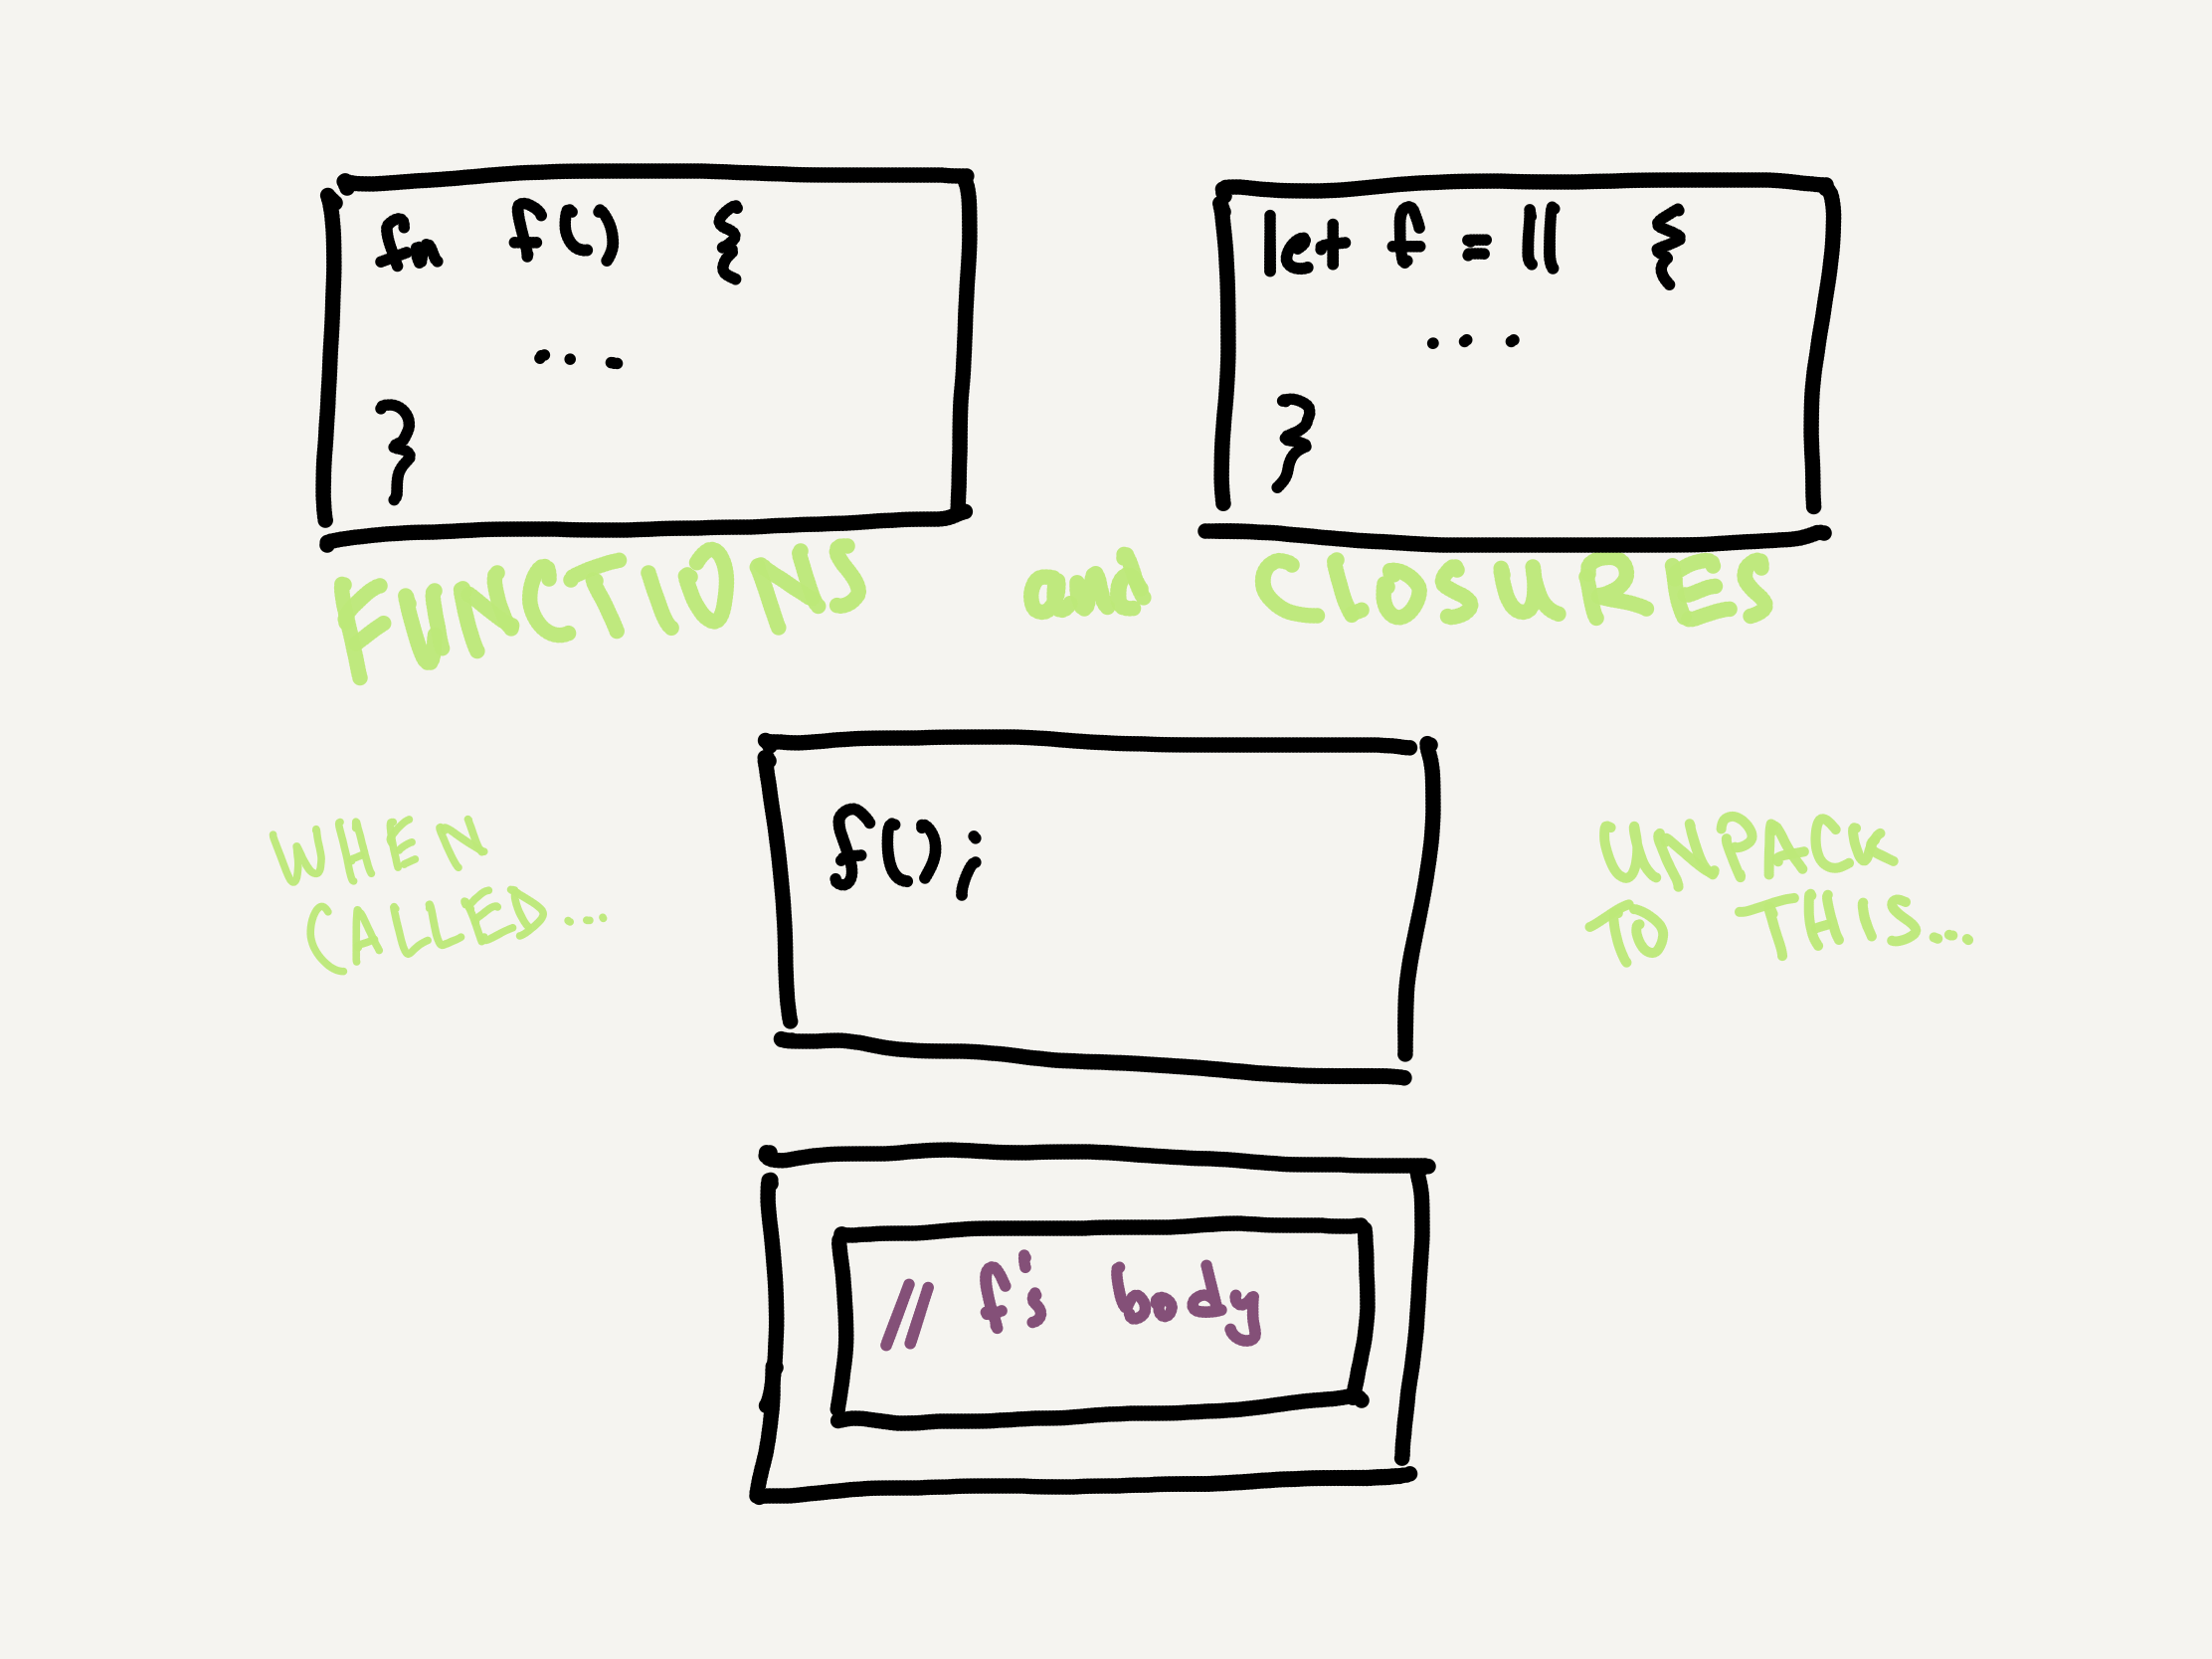 fn f() {
...
}
let f = || {
...
}
FUNCTIONS and CLOSURES
WHEN
CALLED...
f();
UNPACK
TO THIS...
// f's body